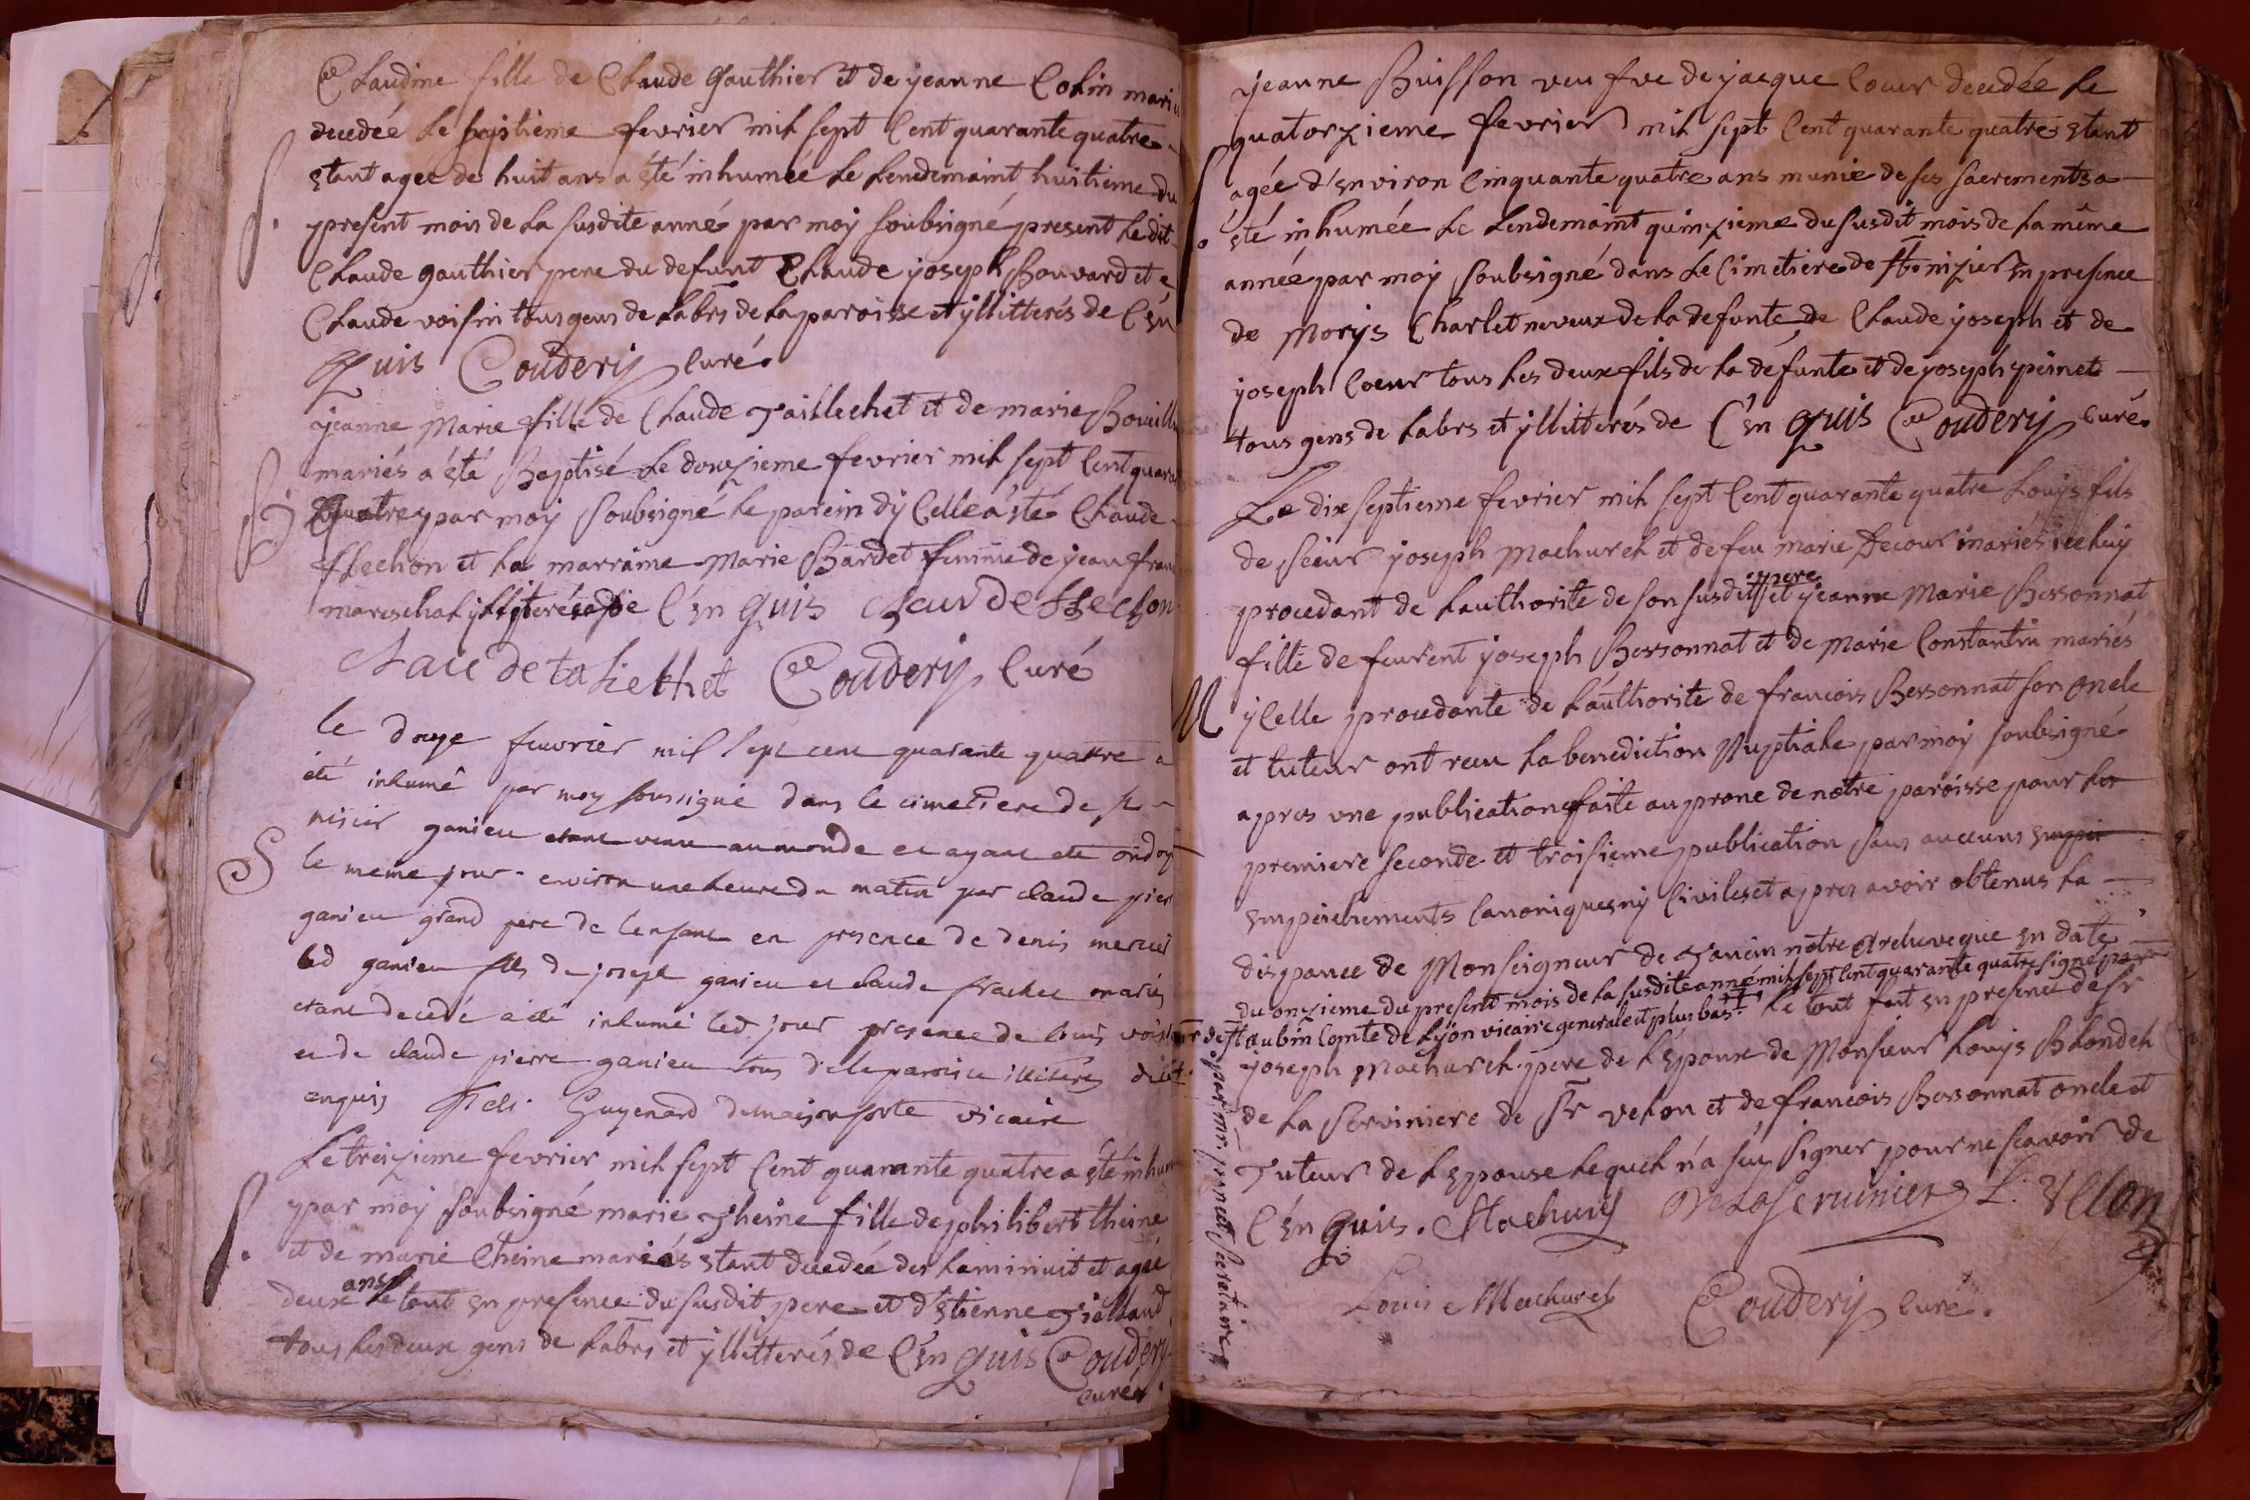 Claudine fille de Claude Gauthier et de jeanne Colin marié
decedée le septieme fevrier mil sept Cent quarante quatre
Etant agée de huit ans a Eté inhumée le lendemaint huitieme du
present mois de la susdite anné par moy soubsigné present ledit
Claude gauthier pere du defunt Claude joseph Bouvard et
Claude voisin tous gens de labrs de la paroisse et yllitterés de l'En
S.
quis Coudery curé
jeanne Marie fille de Claude Taillechet et de marie
mariés a été Baptisé le douzieme fevrier mil sept Cent quara
B
quatre par moy soubsigné le parein dy Celle a Eté Claude
flechon et la marraine Marie Bardet femme de jean fran
mareschal de l'En quis
Coudery Curé
le douze feuvrier mil sept cent quarante quattre a
été inhumé par moy soussigné dans le cimetiere de st
nisier ganieu etant venu au monde et ayant ete ondoy
S
le meme jour environ une heure du matin par claude pier
ganieu grand pere de l'enfant en presence de denis mercier
led ganieu fils de joseph ganieu et claude mariés
etant decedé a été inhumé led jour presence de louis voisin
et de claude pierre ganieu tous de la paroisse illiterés
enquis Guyenard demaisonforte vicaire
Le treizieme fevrier mil sept Cent quarante quatre a Eté inhum
par moy soubsigné marie Theine fille de philibert theine
S.
et de marie Cheine mariés Etant decedée des la minuit et agée
deux ans le tout En presence du susdit pere et d'Etienne
tous les deux gens de labrs et yllitterés de l'En quis Coudery
curé
jeanne Buisson veufve de jacque Coeur decedée le
quatorzieme fevrier mil sept Cent quarante quatre Etant
agée d'Environ Cinquante quatre ans munie de ses sacrements a
S.
Eté inhumée le lendemaint quinzieme du susdit mois de la même
année par moy soubsigné dans le Cimetiere de st nizier En presence
de Morys Charlet neveux de la defunte de Claude joseph et de
joseph Coeur tous les deux fils de la défunte et de joseph peinet
tous gens de labrs et yllitterés de l'En quis Coudery curé
Le dix septieme fevrier mil sept Cent quarante quatre Louys fils
de sieur joseph Machurel et de feu marie Decour mariés icelluy
procedant de l'authorite de son susdit pere et jeanne Marie Bessonnat
fille de feu joseph Bessonnat et de Marie Constantin mariés
M
yCelle procedante de l'authorite de francois Bessonnat son oncle
et tuteur ont receu la benediction Nuptiale par moy soubsigné
apres une publication faite au prone de notre paroisse pour les
premiere seconde et troisieme publication sans aucuns
Empeichements Canoniques ny Civiles et apres avoir obtenus la
dispance de Monseigneur de notre Archeveque En date
du onzieme du present mois de la susdite anné mil sept Cent quarante quatre signé par
de st aubin Comte de Lyon vicaire generale et plus bas le tout fait En presence de sr
par mr secretaire
joseph Machurel pere de l'Epoux de Monsieur Louys Blondel
de la Serviniere de Sr Velon et de francois Bessonnat oncle et
Tuteur de l'Epouse lequel n'a sçu signer pour ne scavoir de
l'En quis. Machurel De La Serviniere L: Velon
Louis Machurel Coudery curé.